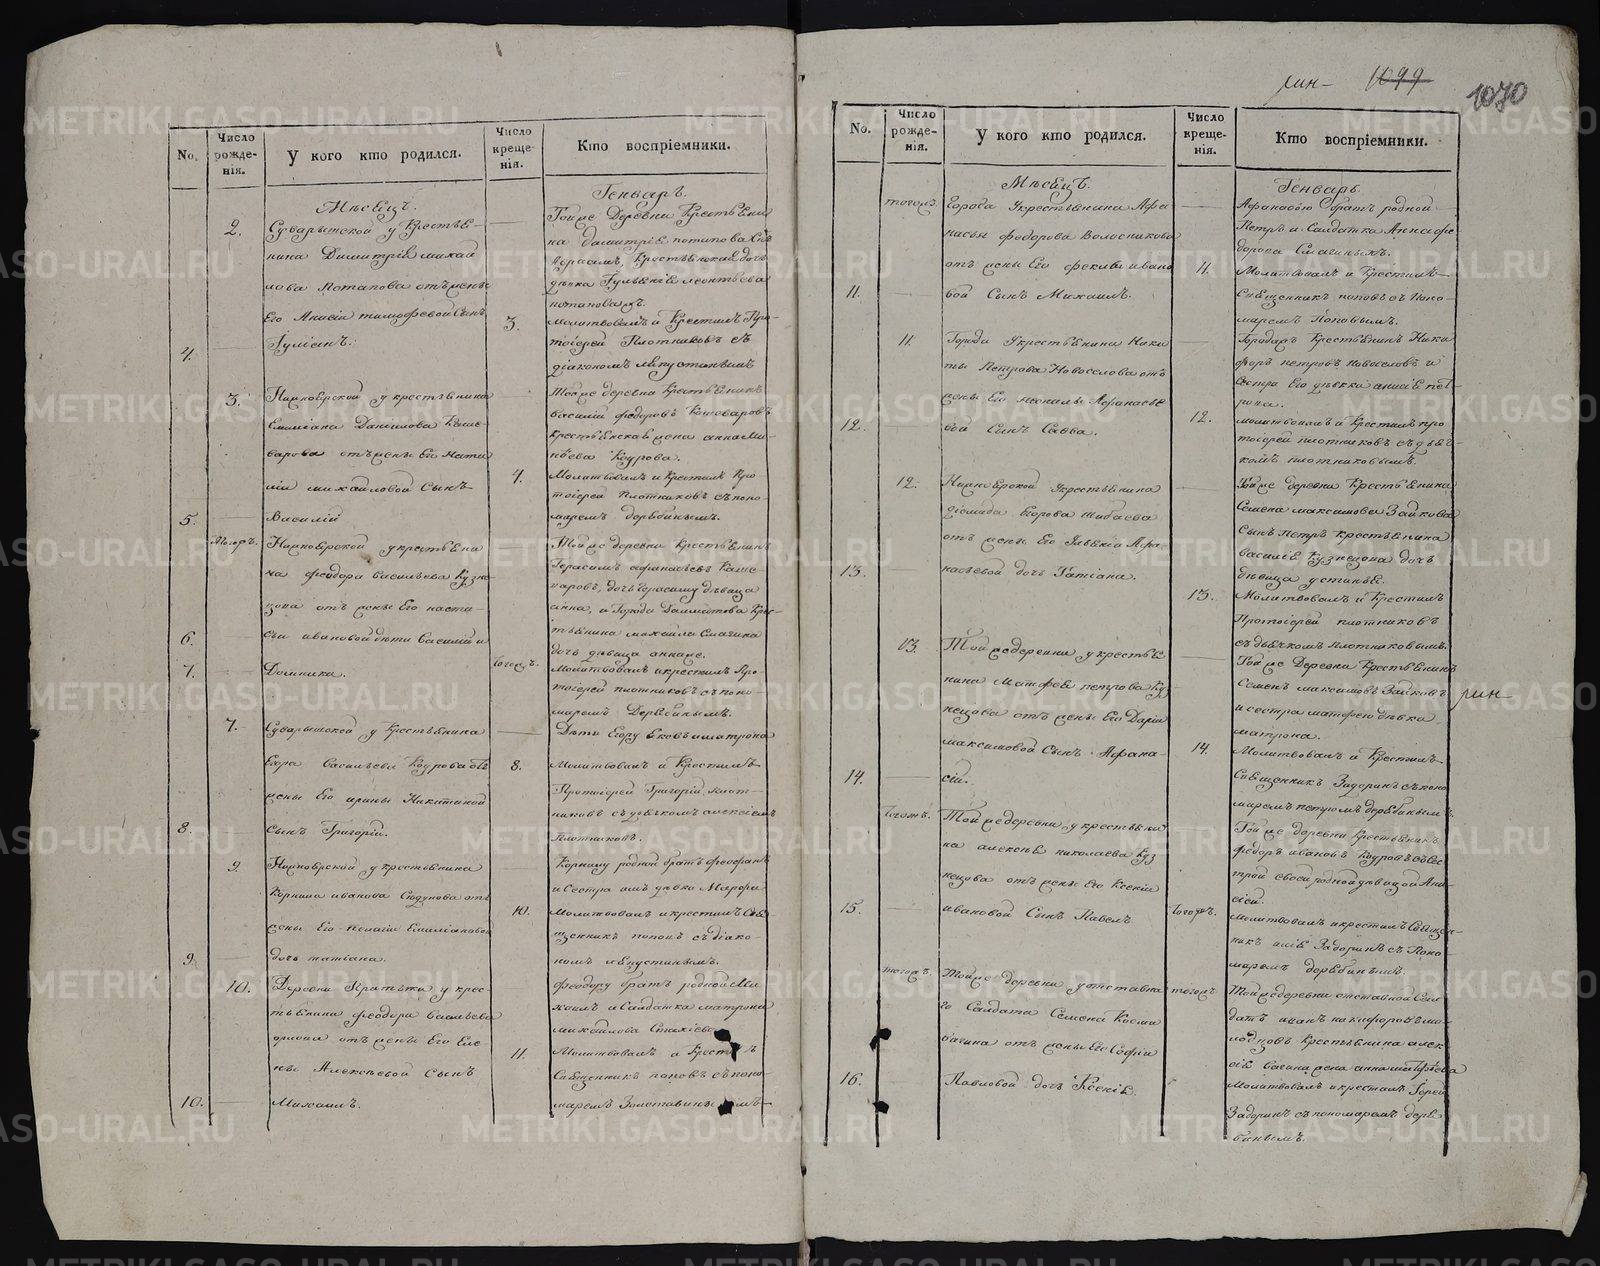 рин-
1099
1070
No.
Число рожде-нія.
У кого кто родился.
Число креще-нія.
Кто воспріемники.
Мѣсецъ.
Генварь.
2.
Суварышской у Крестья-
нина Димитрія михаи
лова Потапова отъ жены
Его Анисіи тимофеевой Сынъ
4.
Іуліанъ.
Тойже Деревни Крестьяни
на Димитрія потапова Сынъ
Герасимъ, Крестьянская дочь
дѣвка
3.
молитвовалъ и Крестилъ Про-
тоіерей Плотниковъ съ
діакономъ
3.
крестьянина
Емиліана Данилова Каше-
варова отъ жены Его Ната
ліи михайловой Сынъ
5.
Василій
Тойже деревни Крестьянинъ
василій федоровъ Кашеваровъ
Крестьянская жена анна
Кодрова.
4.
Молитвовалъ и Крестилъ Про
тоіерей Плотниковъ съ поно-
маремъ дерябинымъ.
тогожъ.
у крестьяни
на феодора васильева Кузне
цова отъ жены Его наста-
6.
сьи ивановой дѣти василій и
7.
Домника.
Тойже деревни Крестьянинъ
Герасимъ афанасьевъ Каше
варовъ, дочь Герасиму дѣвица
анна, и Города Далматова Крес-
тьянина михаила Смагина
дочь дѣвица
тогожъ.
Молитвовалъ и крестилъ Про-
тоіерей плотниковъ съ поно-
маремъ Дерябинымъ.
7.
Суварышской у Крестьянина
Егора Васильева Кодрова отъ
жены Его ирины Никитиной
8.
Сынъ Григорій.
Дѣти Егору Яковъ и матрона
8.
Молитвовалъ и Крестилъ
Протоіерей Григорій плот-
никовъ съ дьячкомъ алексѣемъ
Плотниковъ.
9.
у крестьянина
Корнила иванова Сюдунова отъ
жены Его пелагіи Емиліановой
9.
дочь татіана.
Корнилу родной братъ феофанъ
и Сестра имъ дѣвка Марфа
10.
Молитвовалъ и крестилъ Свя-
щенникъ поповъ съ діако-
номъ
10.
Деревни у крес-
тьянина феодора васильева
отъ жены Его Еле
ны Алексѣевой Сынъ
10.
Михаилъ.
феодору братъ родной Ми
хаилъ и Солдатка матрона
михайлова
11.
Молитвовалъ и Крестилъ
Священникъ поповъ съ поно-
маремъ
No.
Число рожде-нія.
У кого кто родился.
Число креще-нія.
Кто воспріемники.
Мѣсецъ.
Генварь.
тогожъ
Города У крестьянина Афа
насья федорова Волосникова
отъ жены Его феклы ивано
11.
вой Сынъ Михаилъ.
Афанасью братъ родной
Петръ и Солдатка Анна фе
дорова Смагиныхъ.
11.
Молитвовалъ и Крестилъ
Священникъ поповъ съ поно-
маремъ Поповымъ.
11.
Города У крестьянина Ники
ты Петрова Новоселова отъ
жены Его меланьи Афанасье
12.
вой Сынъ Савва.
Городазъ Крестьянинъ Ники
форъ петровъ новоселовъ и
Сестра Его дѣвка анисія пет-
рова.
12.
молитвовалъ и Крестилъ про
тоіерей плотниковъ съ дьяч-
комъ плотниковымъ.
12.
У крестьянина
діомида Егорова шибаева
отъ жены Его Афа
13.
насьевой дочь Татіана.
Тойже деревни Крестьянина
Семена максимова Зайкова
Сынъ Петръ крестьянина
василія Кузнецова дочь
дѣвица устинья.
13.
Молитвовалъ и Крестилъ
Протоіерей плотниковъ
съ дьячкомъ Плотниковымъ.
13.
Тойже деревни у крестья
нина Матфея петрова Куз
нецова отъ жены Его Даріи
максимовой Сынъ Афана-
14.
сій.
Тойже Деревни Крестьянинъ
Семенъ максимовъ Зайковъ
и сестра матфею дѣвка
матрона.
рин-
14.
Молитвовалъ и Крестилъ
Священникъ Задоринъ съ поно
маремъ петромъ дерябинымъ.
тогожъ.
Тойже деревни у крестьяни
на алексѣя николаева Куз
нецова отъ жены Его Ксеніи
15.
ивановой Сынъ Павелъ
Тойже деревни Крестьянинъ
федоръ ивановъ Кодровъ съ сес
трой своей родной дѣвицой Ани
сіей.
тогожъ.
Молитвовалъ и крестилъ Священ-
никъ Задоринъ съ Поно-
маремъ дерябинымъ.
тогожъ.
Тойже деревни у отставна
го Солдата Семена Косма
бачина отъ жены Его Софіи
16.
Павловой дочь Ксенія.
тогожъ
Тойже деревни отставной Сол
датъ иванъ никифоровъ
Крестьянина алек
сія жена анна
Молитвовалъ и крестилъ Іерей
Задоринъ съ пономаремъ деря
бинымъ.